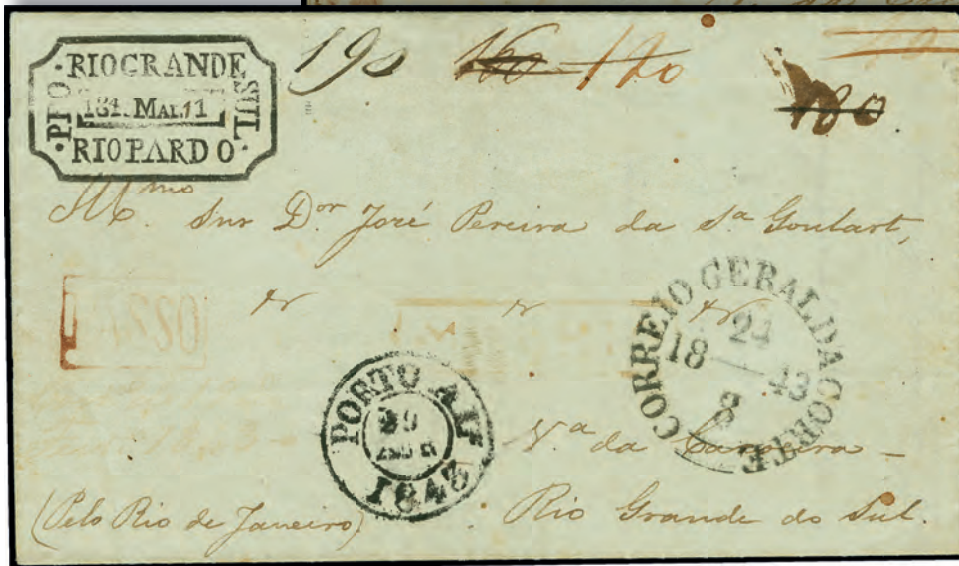 190 160 120
180
RIO GRANDE
PTO
184. MAI.11
SUL
RIO PARDO
Illmo Snr Dor José Pereira da Sa Goulart,
CORREIO GERAL DA CORTE
24
18 43
8
PORTO ALE
29
1843
Va da Caxoeira
(Pelo Rio de Janeiro) Rio Grande do Sul.